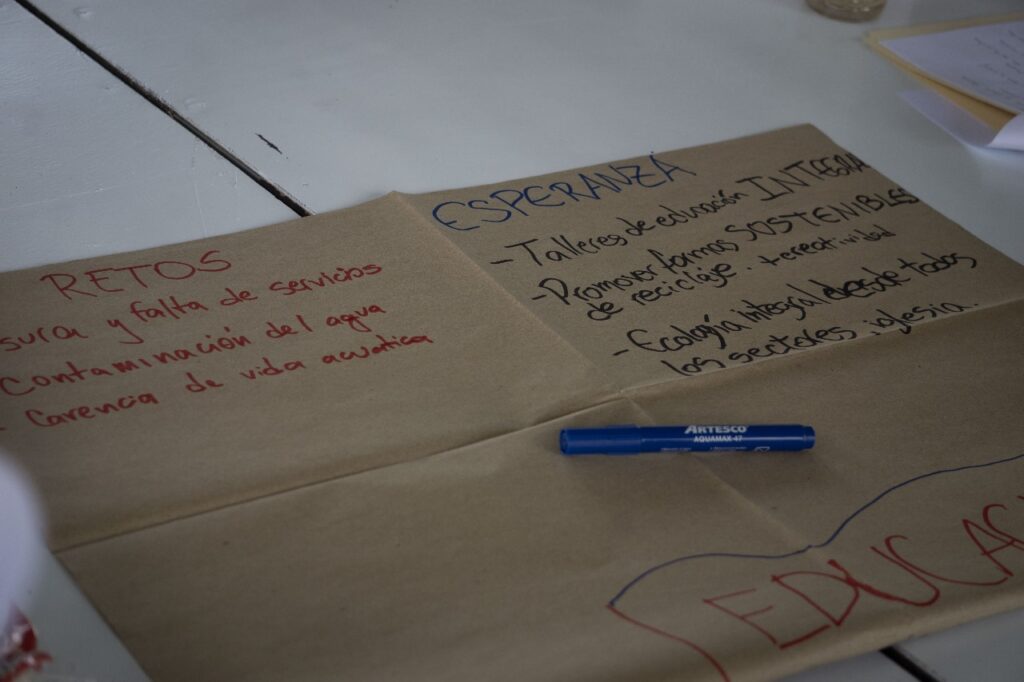 RETOS
sura y falta de servicios
Contaminación del agua
- Carencia de vida acuatica
ESPERANZA
- Talleres de educación INTEGRA
- Promover formas SOSTENIBLES
de reciclaje. + creatividad
- Ecología integral desde todos
los sectores, iglesia.
ARTESCO
AQUAMAX-47
EDUCAC